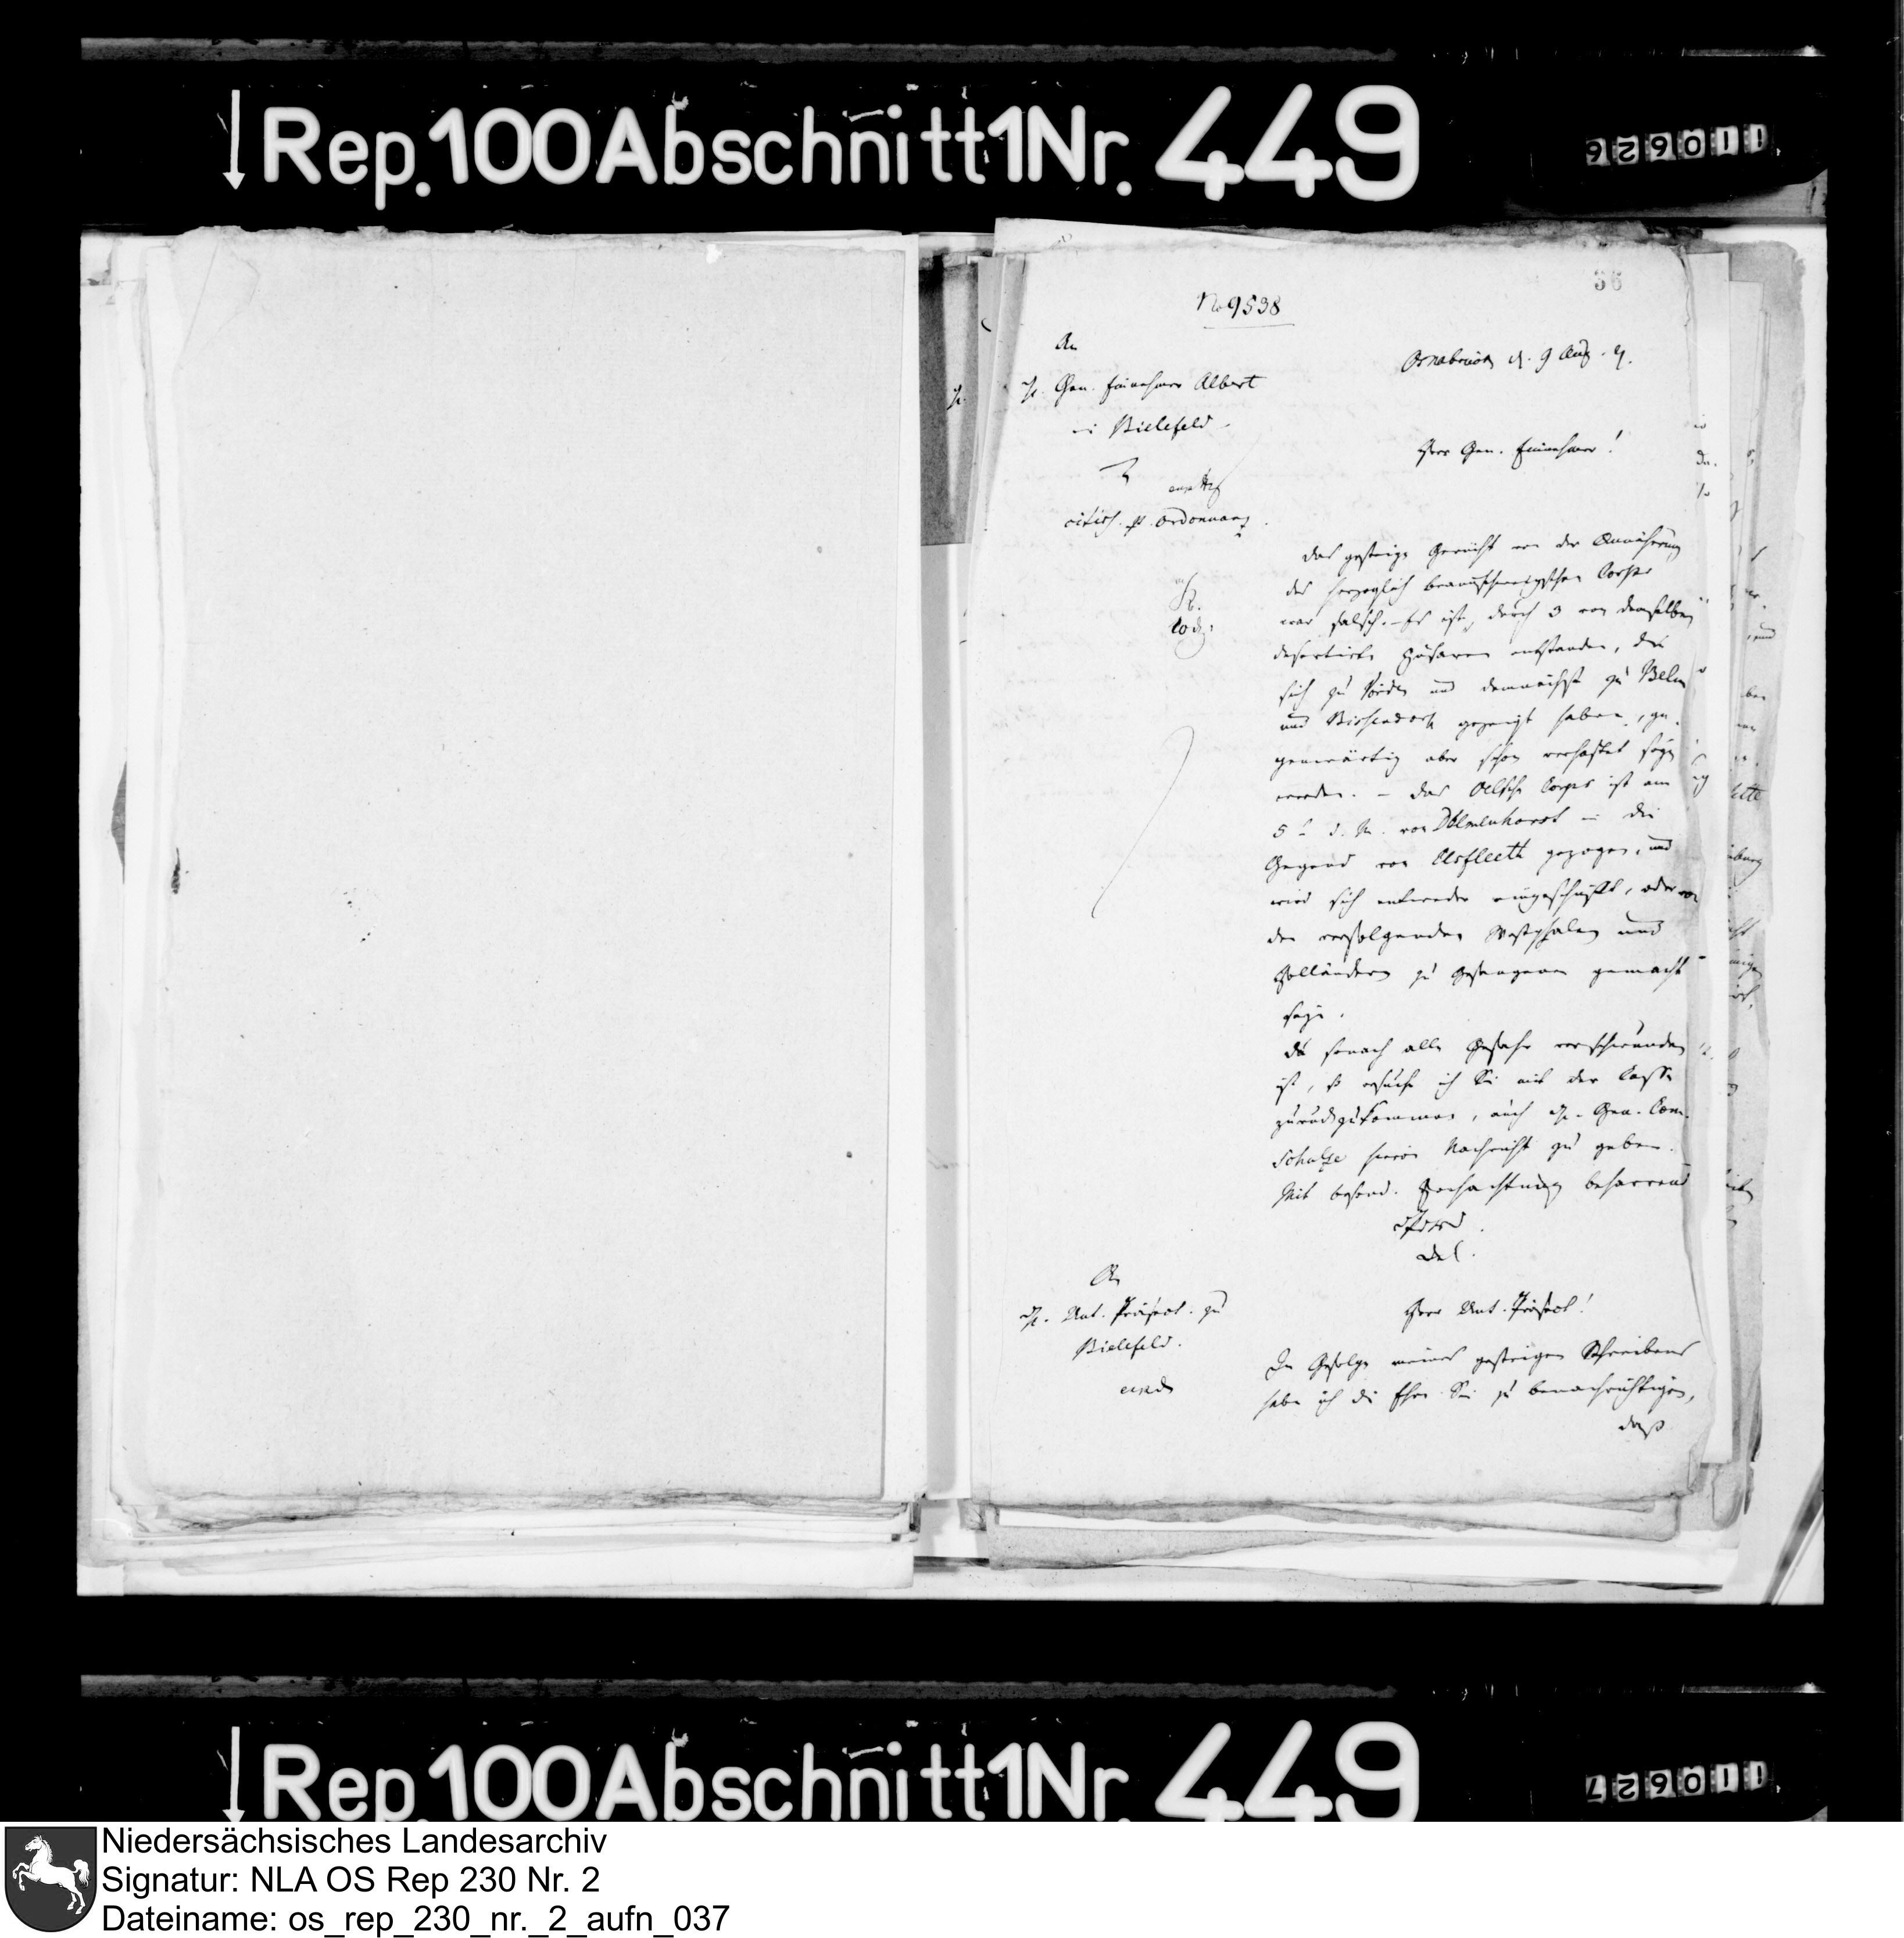 Rep. 100 Abschnitt 1 Nr. 449
110626
36
No 9538
An
H. Gen. Einnehmer Albert
in Bielefeld.
citiss. pr. Ordonnanz.
Osnabrück d. 9 Aug. 9.
Herr Gen. Einnehmer!
Das gestrige Gerücht von der Annäherung
des herzoglich braunschweigschen Corps
war falsch. – Es ist durch 3 von demselben
desertirte Husaren entstanden, die
sich zu Vörden und demnächst zu Belm
und Bissendorf gezeigt haben, ge-
genwärtig aber schon verhaftet seyn
werden. – Das Oelssche Corps ist am
5t d. M. von Delmenhorst in die
Gegend von Elsfleth gezogen, und
wird sich entweder eingeschifft, oder von
den verfolgenden Westphalen und
Holländern zu Gefangenen gemacht
seyn.
Da sonach alle Gefahr verschwunden
ist, so ersuche ich Sie mit der Casse
zurückzukommen, auch H. Gen. Com.
Schulze hievon Nachricht zu geben.
Mit besond. Hochachtung beharrend
An
H. Unt. Präfect. zu
Bielefeld.
eind
Herr Unt. Präfect!
In Gefolge meines gestrigen Schreibens
habe ich die Ehre Sie zu benachrichtigen,
daß
Rep. 100 Abschnitt 1 Nr. 449
110627
Niedersächsisches Landesarchiv
Signatur: NLA OS Rep 230 Nr. 2
Dateiname: os_rep_230_nr._2_aufn_037